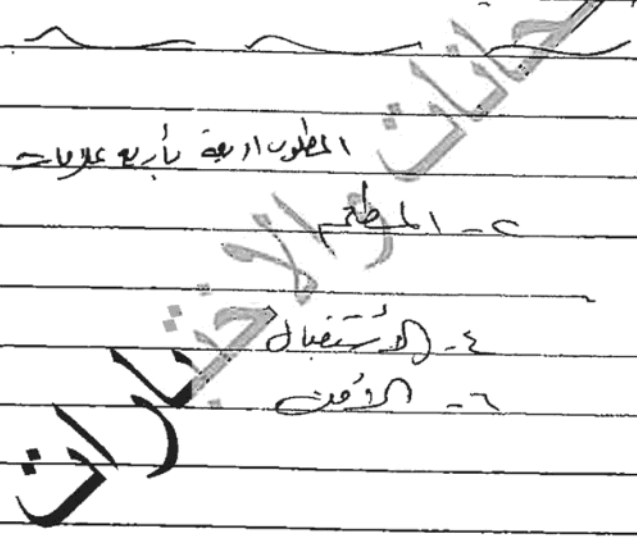 المطلوب اربعة بأربع علامات
٢- المطعم
٤- الأستقبال
٦- الأمن